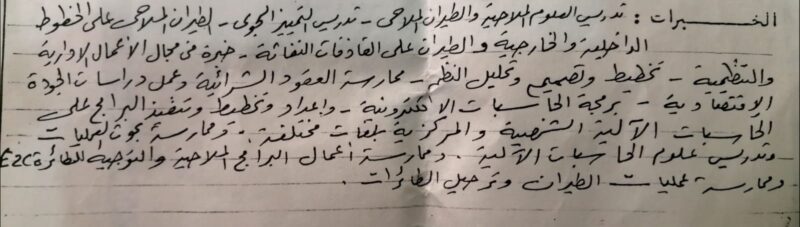 الخبرات : تدريس العلوم الملاحية والطيران الملاحى - تدريس التمييز الجوى - الطيران الملاحى على الخطوط
الداخلية والخارجية والطيران على القاذفات النفاثة - خبرة فى مجال الأعمال الادارية
والتنظيمية - تخطيط وتصميم وتحليل النظم - ممارسة العقود الشرائية وعمل دراسات الجودة
الاقتصادية - برمجة الحاسبات الالكترونية - واعداد وتخطيط وتنفيذ البرامج على
الحاسبات الآلية الشخصية والمركزية بلغات مختلفة . وممارسة بحوث العمليات
وتدريس علوم الحاسبات الآلية . وممارسة أعمال البرامج الملاحية والتوجيه للطائرة E2C
وممارسة عمليات الطيران وترحيل الطائرات .